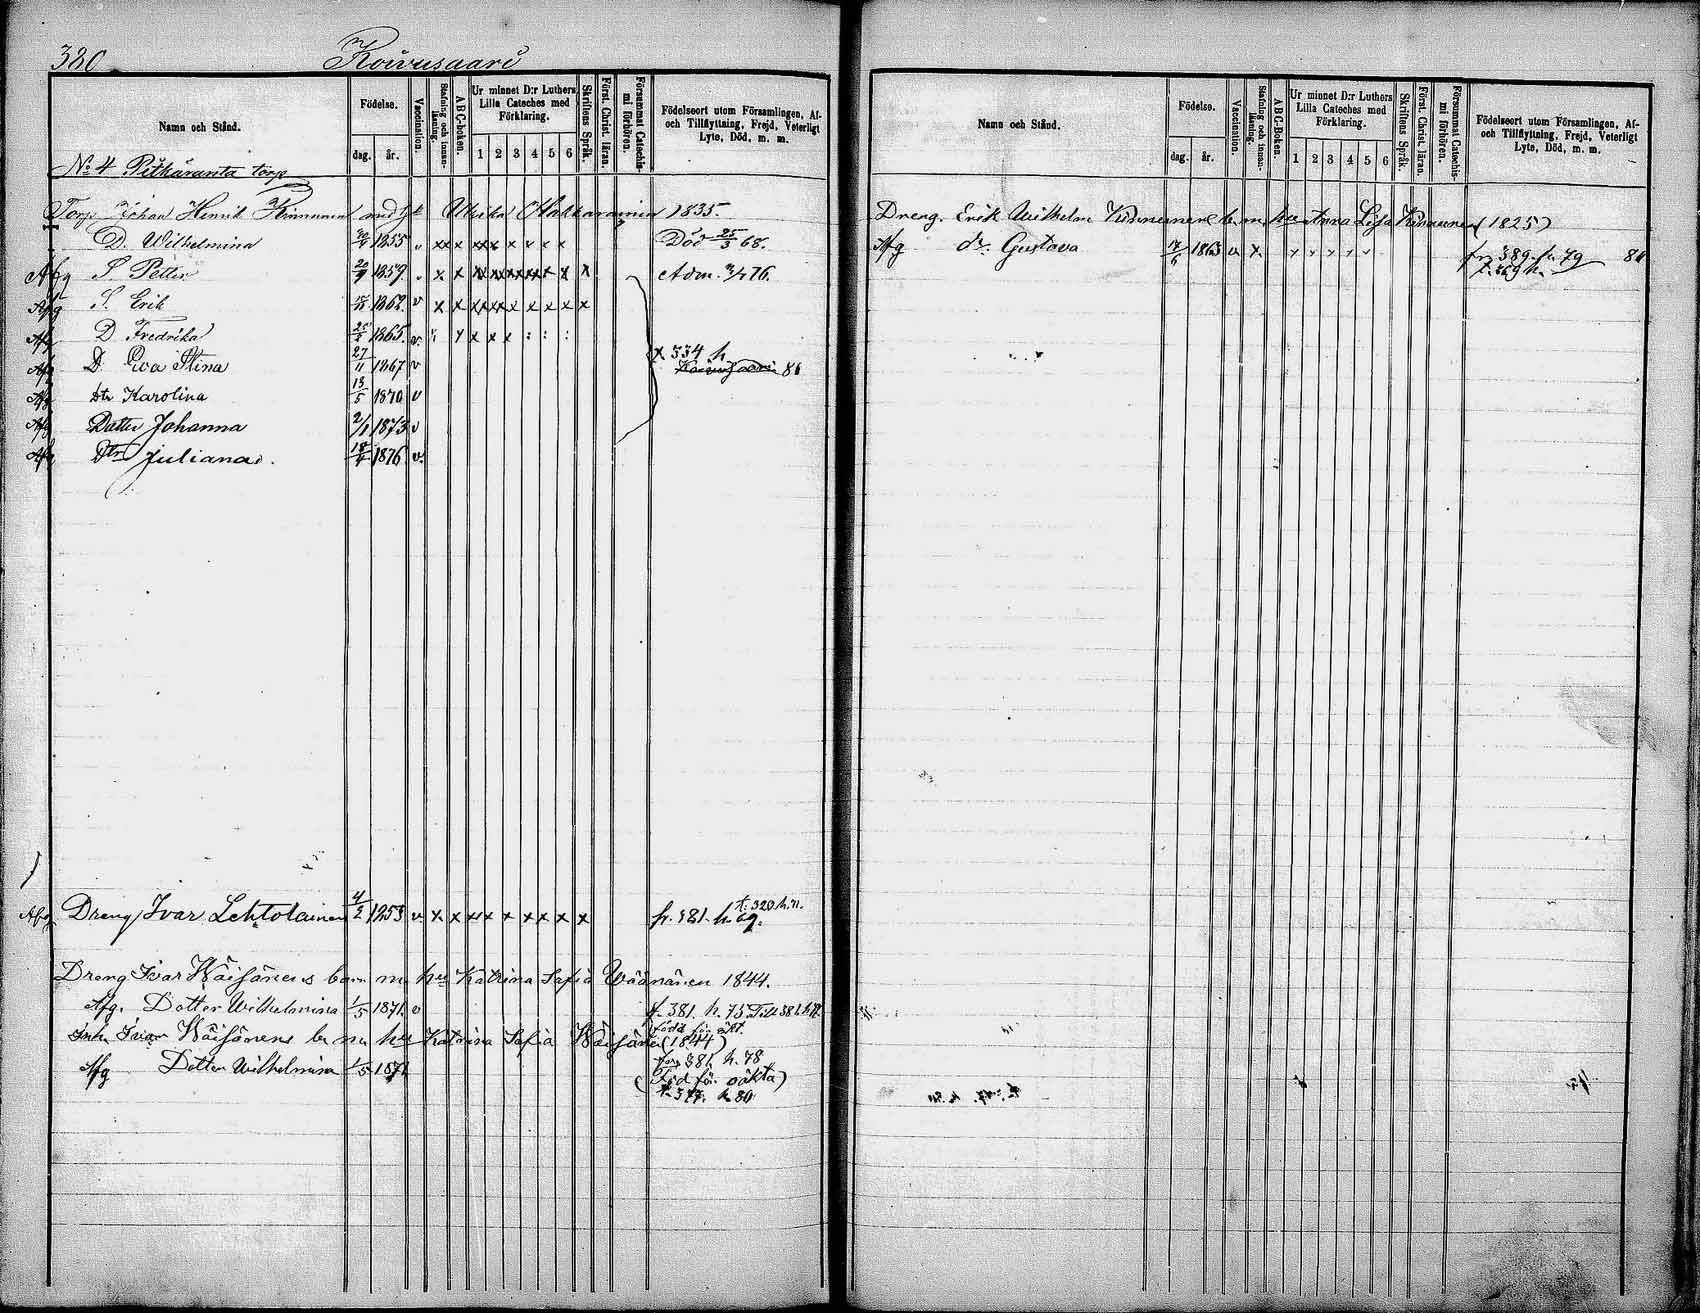 380 Koivusaari
Namn och Stånd.
Födelse.
dag. år.
Vaccination.
Stafning och innan-läsning.
A B C-boken.
Ur minnet D:r Luthers Lilla Cateches med Förklaring.
1 2 3 4 5 6
Skriftens Språk.
Först. Christ. läran.
Försummat Catechis-mi förhören.
Födelseort utom Församlingen, Af- och Tillflyttning, Frejd, Veterligt Lyte, Död, m. m.
No 4 Pitkäranta torp
Torp. Johan Henrik Kinnunen med h Ulrika Hakkarainen 1835.
D. Wilhelmina 1855 x x x x x x x x Död 25/3 68.
Afg S Petter 20/9 1859 x x x x x x x x x Adm. 76.
Afg S. Erik 1862 v x x x x x x x x x
Afg D Fredrika 25/2 1865 v x x x
Afg D. Eva Stina 27/11 1867 v x 334 h 81
Afg dtr Karolina 13/5 1870 v
Afg Dotter Johanna 2/1 1873 v
Afg Dtr Juliana. 18/4 1876 v.
Afg Dreng Ivar Lehtolainen 4/2 1853 v x x x x x x x x x fr. 381. h. 69. t. 320. h. 71.
Dreng Ivar Wäisänens barn m. hu Katrina Sofia Väänänen 1844.
Afg. Dotter Wilhelmina 1/5 1871. v f. 381. h. 75 Till 381. h 77.
född för äkt.
Inh. Ivar Wäisänens b. m. hu Katarina Sofia Wäisänen (1844)
Afg Dotter Wilhelmina 1/5 1871 från 381. h. 78
(Född för. oäkta)
t. 377. h. 80
Namn och Stånd.
Födelse.
dag. år.
Vaccination.
Stafning och innan-läsning.
A B C-Boken.
Ur minnet D:r Luthers Lilla Cateches med Förklaring.
1 2 3 4 5 6
Skriftens Språk.
Först. Christ. läran.
Försummat Catechis-mi förhören.
Födelseort utom Församlingen, Af- och Tillflyttning, Frejd, Veterligt Lyte, Död, m. m.
Dreng. Erik Wilhelm Kinnunens b. m. hu Anna Lisa Kinnunen (1825)
Afg dr. Gustava 1863 v x fr. 389. h. 79
t. 369 h. 80